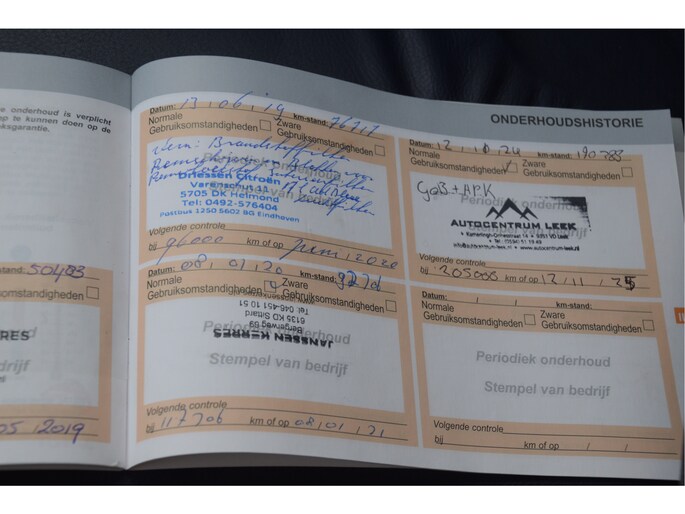 onderhoud is verplicht
te kunnen doen op de
ksgarantie.
stand: 50483
RRES
05 2019
ONDERHOUDSHISTORIE
Datum: 13, 06, 19 km-stand: 76717
Normale Gebruiksomstandigheden
Zware Gebruiksomstandigheden
Driessen Citroën
Varenschut 11
5705 DK Helmond
Tel: 0492-576404
Postbus 1250 5602 BG Eindhoven
Volgende controle
bij 96000 km of op juni, 2020
Datum: 08, 01, 20 km-stand:
Normale Gebruiksomstandigheden
Zware Gebruiksomstandigheden
Periodiek onderhoud
JANSSEN KERRES
Bergerweg 69
6135 KD Sittard
Tel: 046-451 10 51
Stempel van bedrijf
Volgende controle
bij km of op 08, 01, 21
Datum: km-stand: 190788
Normale Gebruiksomstandigheden
Zware Gebruiksomstandigheden
GOB + APK
Periodiek
AUTOCENTRUM LEEK
info@autocentrum-leek.nl www.autocentrum-leek.nl
Volgende controle
bij 205000 km of op 12, 11, 25
Datum: , , km-stand:
Normale Gebruiksomstandigheden
Zware Gebruiksomstandigheden
Periodiek onderhoud
Stempel van bedrijf
Volgende controle
bij km of op / /